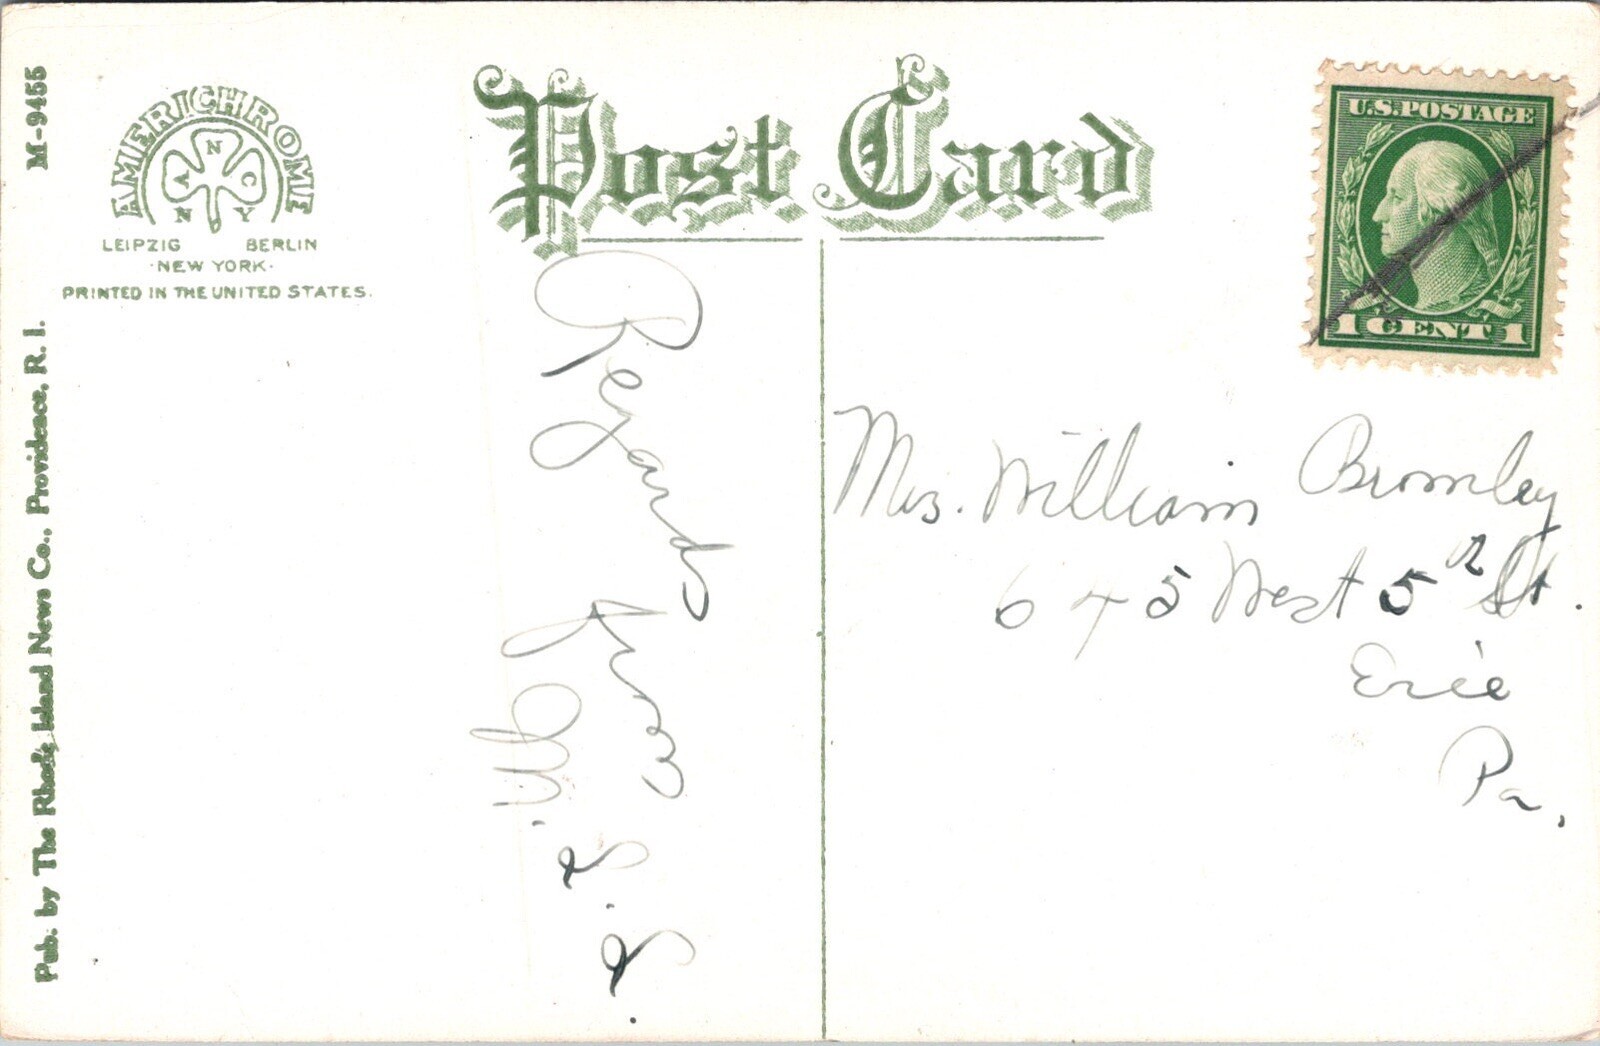 M-9455
AMERICHROME
A N C
N Y
LEIPZIG BERLIN
·NEW YORK·
PRINTED IN THE UNITED STATES.
Pub. by The Rhode Island News Co., Providence, R. I.
Post Card
U.S. POSTAGE
1 CENT 1
Regards
from
M. L. L.
Mrs. William Bromley
645 West 5 St.
Erie
Pa.